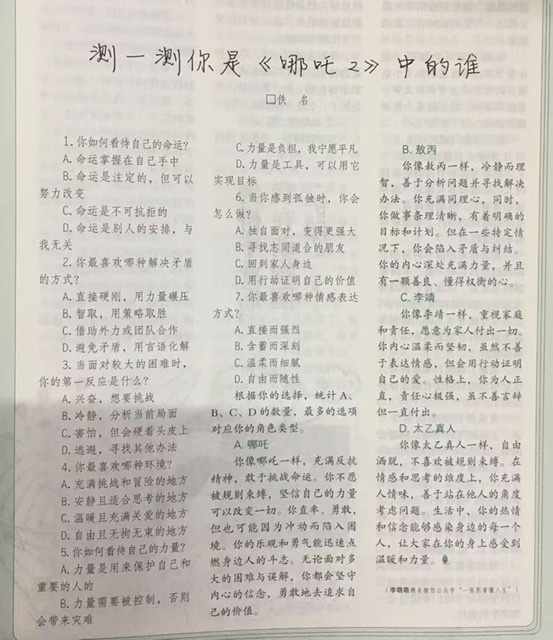 测一测你是《哪吒2》中的谁
□佚 名
1.你如何看待自己的命运?
A.命运掌握在自己手中
B.命运是注定的，但可以
努力改变
C.命运是不可抗拒的
D.命运是别人的安排，与
我无关
2.你最喜欢哪种解决矛盾
的方式?
A.直接硬刚，用力量碾压
B.智取，用策略取胜
C.借助外力或团队合作
D.避免矛盾，用言语化解
3.当面对较大的困难时，
你的第一反应是什么?
A.兴奋，想要挑战
B.冷静，分析当前局面
C.害怕，但会硬着头皮上
D.逃避，寻找其他办法
4.你最喜欢哪种环境?
A.充满挑战和冒险的地方
B.安静且适合思考的地方
C.温暖且充满关爱的地方
D.自由且无拘无束的地方
5.你如何看待自己的力量?
A.力量是用来保护自己和
重要的人的
B.力量需要被控制，否则
会带来灾难
C.力量是负担，我宁愿平凡
D.力量是工具，可以用它
实现目标
6.当你感到孤独时，你会
怎么做?
A.独自面对，变得更强大
B.寻找志同道合的朋友
C.回到家人身边
D.用行动证明自己的价值
7.你最喜欢哪种情感表达
方式?
A.直接而强烈
B.含蓄而深刻
C.温柔而细腻
D.自由而随性
根据你的选择，统计A、
B、C、D的数量，最多的选项
对应你的角色类型。
A.哪吒
你像哪吒一样，充满反抗
精神，敢于挑战命运。你不愿
被规则束缚，坚信自己的力量
可以改变一切。你直率、勇敢，
但也可能因为冲动而陷入困
境。你的乐观和勇气能迅速点
燃身边人的斗志。无论面对多
大的困难与误解，你都会坚守
内心的信念，勇敢地去追求自
己的价值。
B.敖丙
你像敖丙一样，冷静而理
智，善于分析问题并寻找解决
办法。你充满同理心，同时，
你做事条理清晰，有着明确的
目标和计划。但在一些特定情
况下，你会陷入矛盾与纠结。
你的内心深处充满力量，并且
有一颗善良、懂得权衡的心。
C.李靖
你像李靖一样，重视家庭
和责任，愿意为家人付出一切。
你内心温柔而坚韧，虽然不善
于表达情感，但会用行动证明
自己的爱。性格上，你为人正
直，责任心极强，虽不善言辞
但一直付出。
D.太乙真人
你像太乙真人一样，自由
洒脱，不喜欢被规则束缚。在
情感和思考的维度上，你充满
人情味，善于站在他人的角度
考虑问题。生活中，你的热情
和信念能够感染身边的每一个
人，让大家在你的身上感受到
温暖和力量。